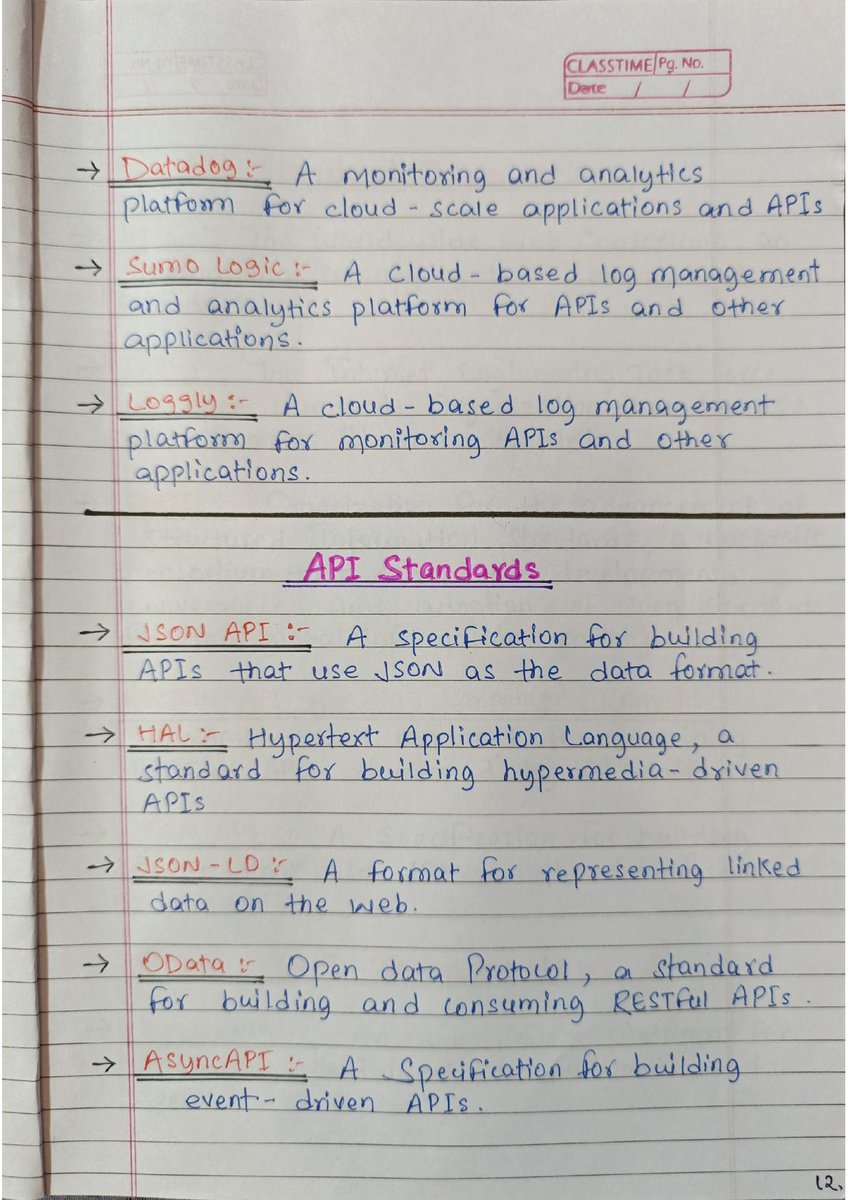 CLASSTIME Pg. No.
Date / /
→ Datadog :- A monitoring and analytics
platform for cloud-scale applications and APIs
→ Sumo Logic :- A cloud-based log management
and analytics platform for APIs and other
applications.
→ Loggly :- A cloud-based log management
platform for monitoring APIs and other
applications.
API Standards
→ JSON API :- A specification for building
APIs that use JSON as the data format.
→ HAL :- Hypertext Application Language, a
standard for building hypermedia-driven
APIs
→ JSON-LD :- A format for representing linked
data on the web.
→ OData :- Open data Protocol, a standard
for building and consuming RESTful APIs.
→ AsyncAPI :- A Specification for building
event-driven APIs.
12.